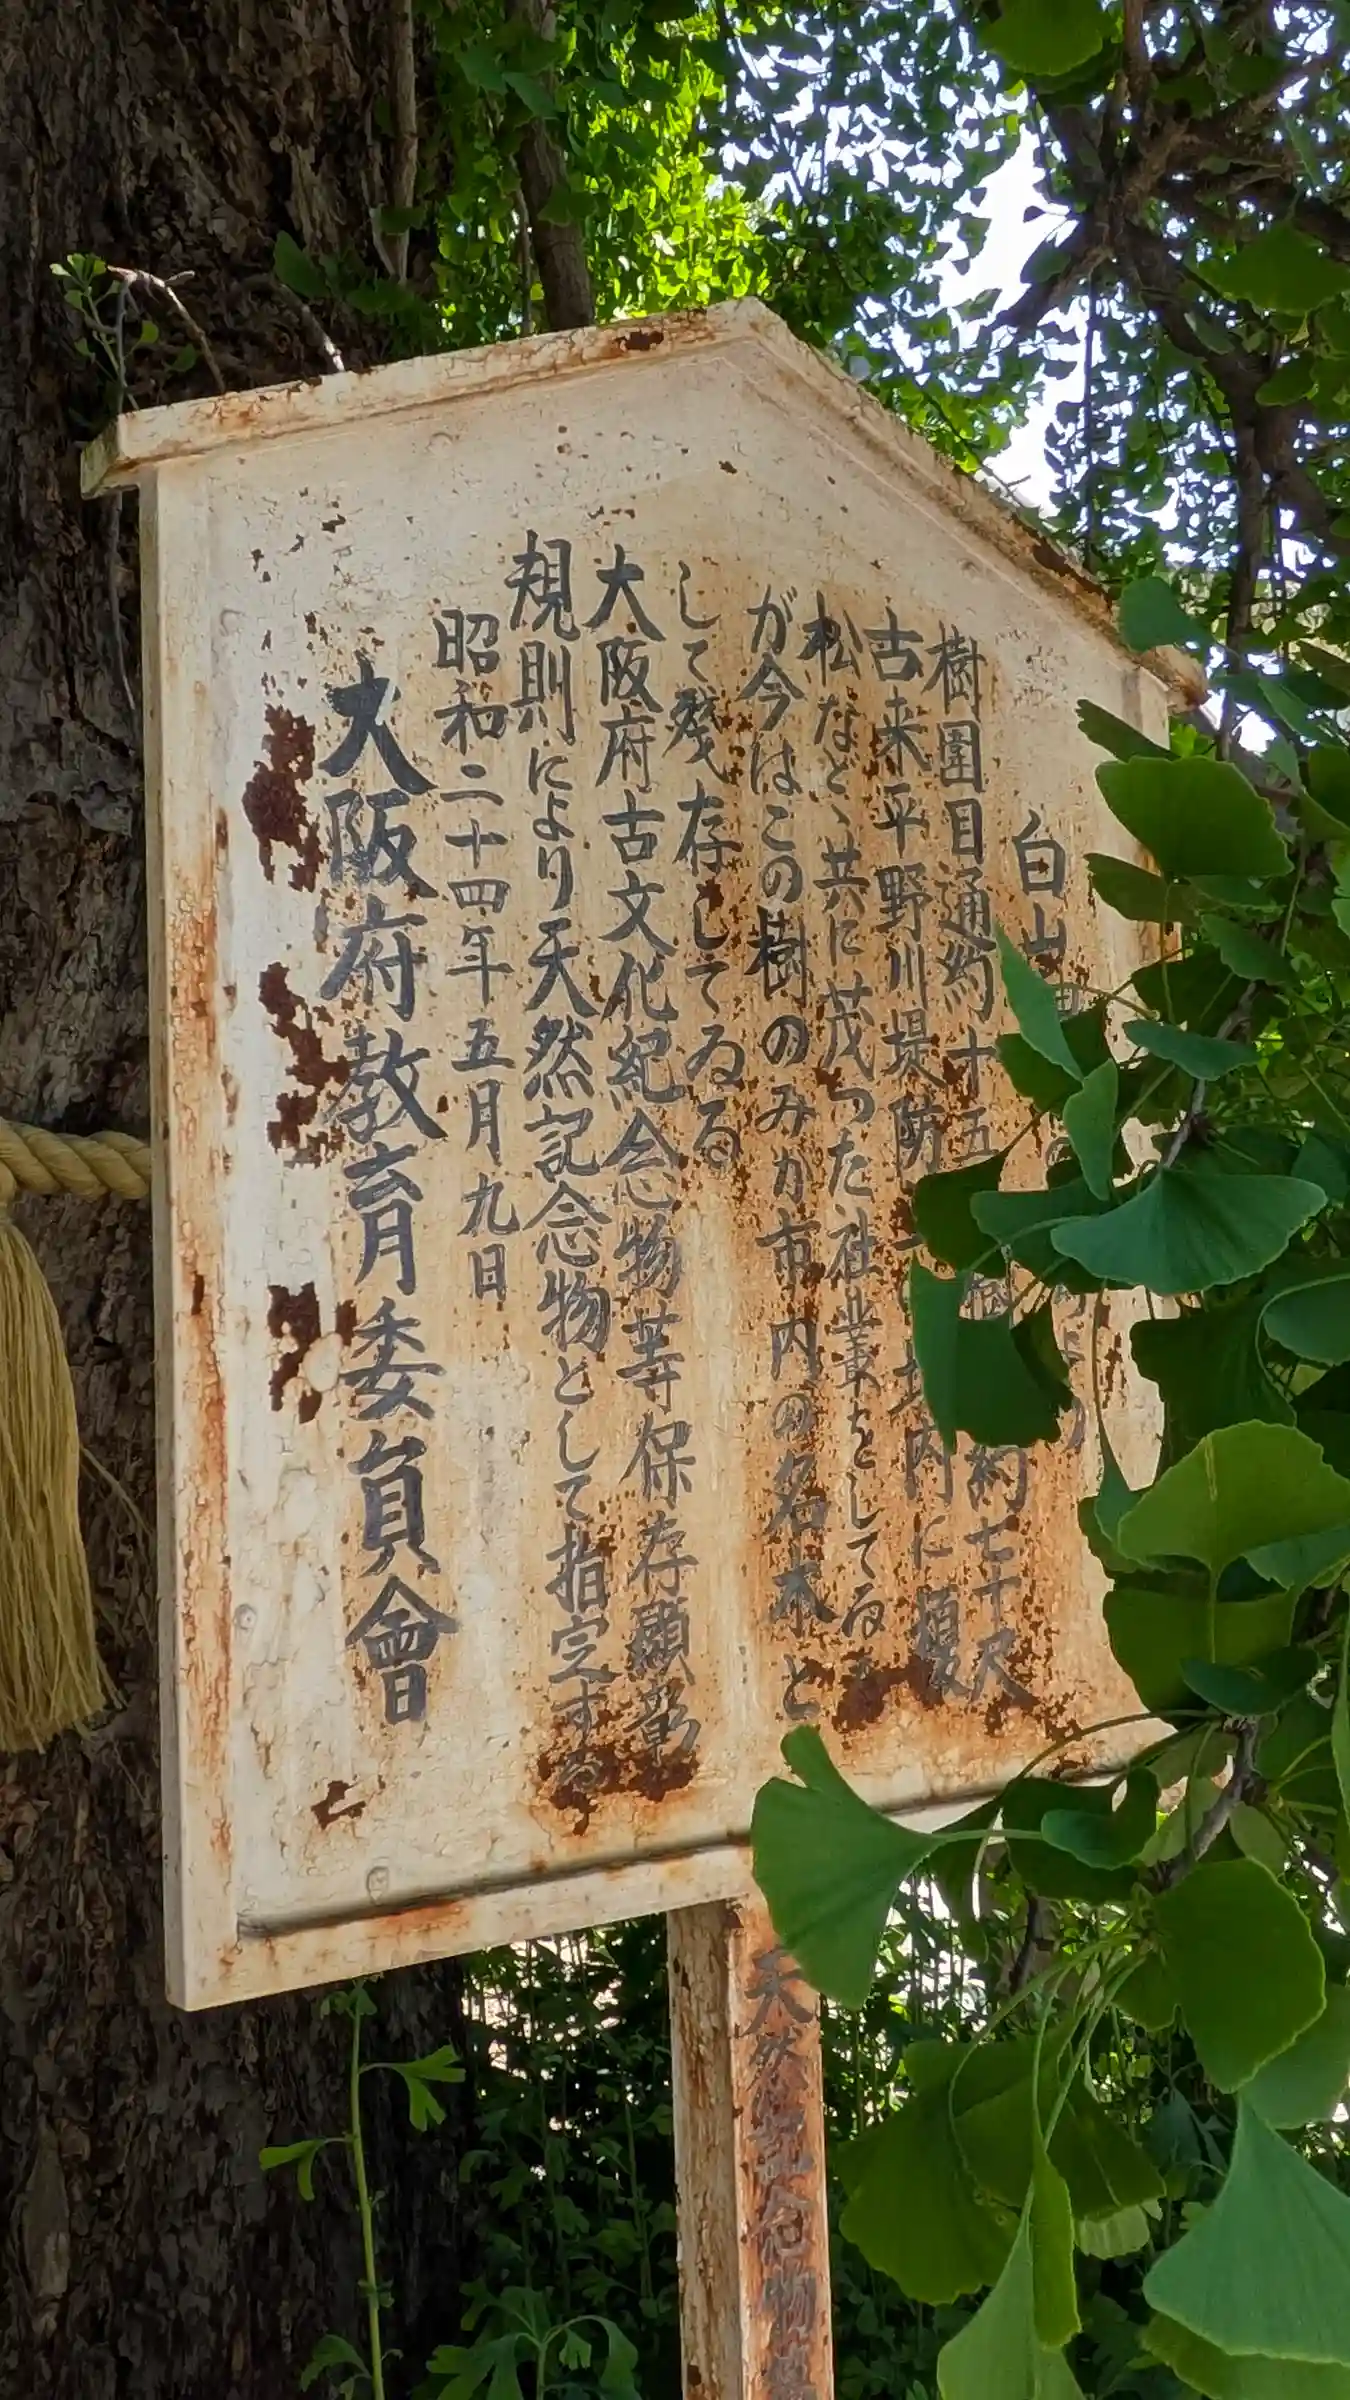 白山
樹囲目通約十五 樹 約七十尺
古来平野川堤防 境内に榎
松など、共に茂つた社業をしてゐ
が今はこの樹のみか市内の名木と
して残存してゐる
大阪府古文化紀念物等保存顕彰
規則により天然記念物として指定する
昭和二十四年五月九日
大阪府教育委員會
天然記念物